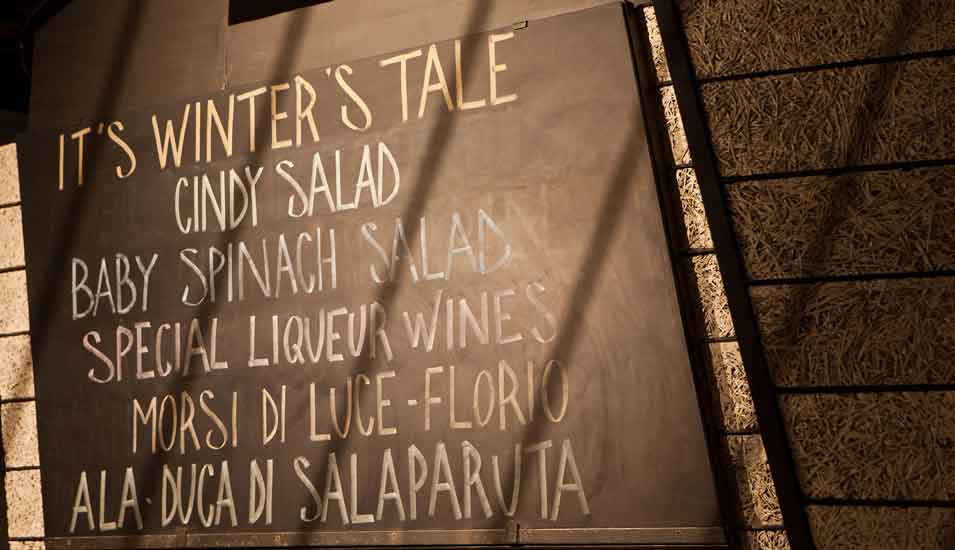 IT'S WINTER'S TALE
CINDY SALAD
BABY SPINACH SALAD
SPECIAL LIQUEUR WINES
MORSI DI LUCE-FLORIO
ALA·DUCA DI SALAPARUTA